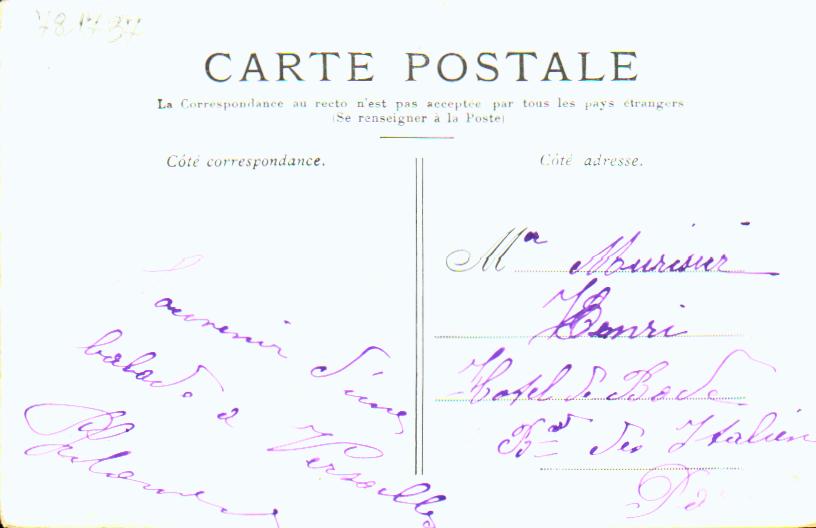 781737
CARTE POSTALE
La Correspondance au recto n'est pas acceptée par tous les pays étrangers
(Se renseigner à la Poste)
Côté correspondance.
Souvenir d'une
balade a Versailles
Côté adresse.
Mr
Henri
Hotel de Bade
Bd des Italien